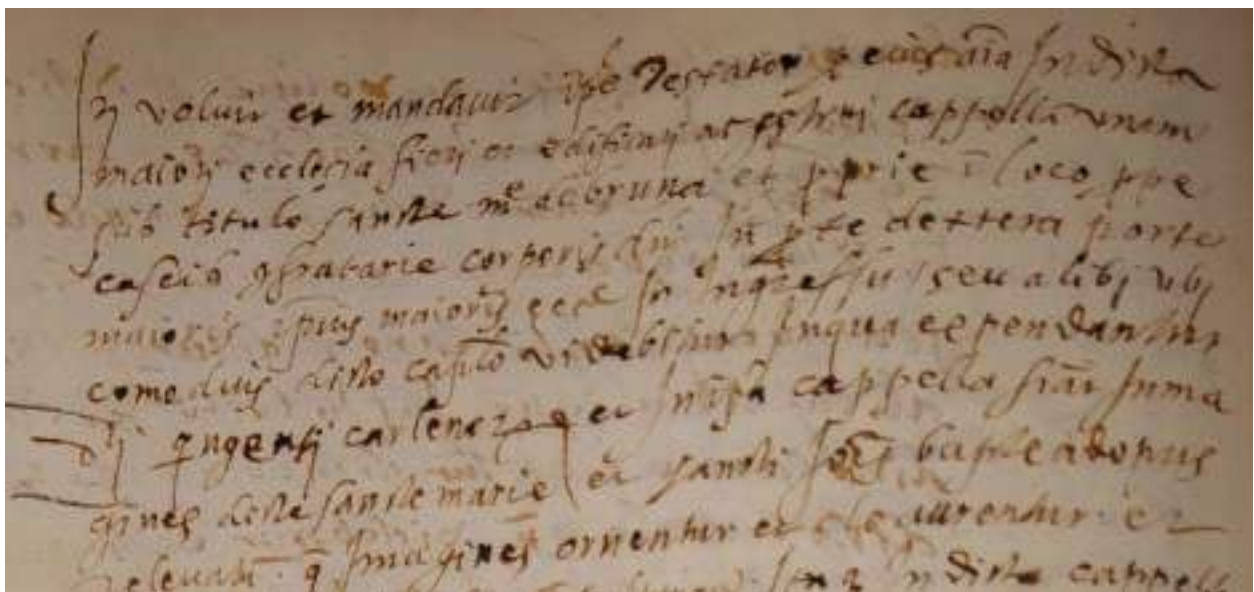 It voluit et mandavit ipe Testator p eius aīa In dicta
maiori ecclesia fieri et edificari ac cappellā unam
sub titulo sancte me de bruna et pprie ī loco ppe
corporis dni In pte dextera porte
maioris ipius maioris ecce In Ingressu seu alibi ubi
comodius dicto captlo videbitur Inqua expendantur
dti qngenti carlenor et In ipa cappella fiāt Imma
gines dicte sancte marie et sancti Jois baptle ad opus
relevatū q Imagines ornentur et aurentur et
dicta cappella